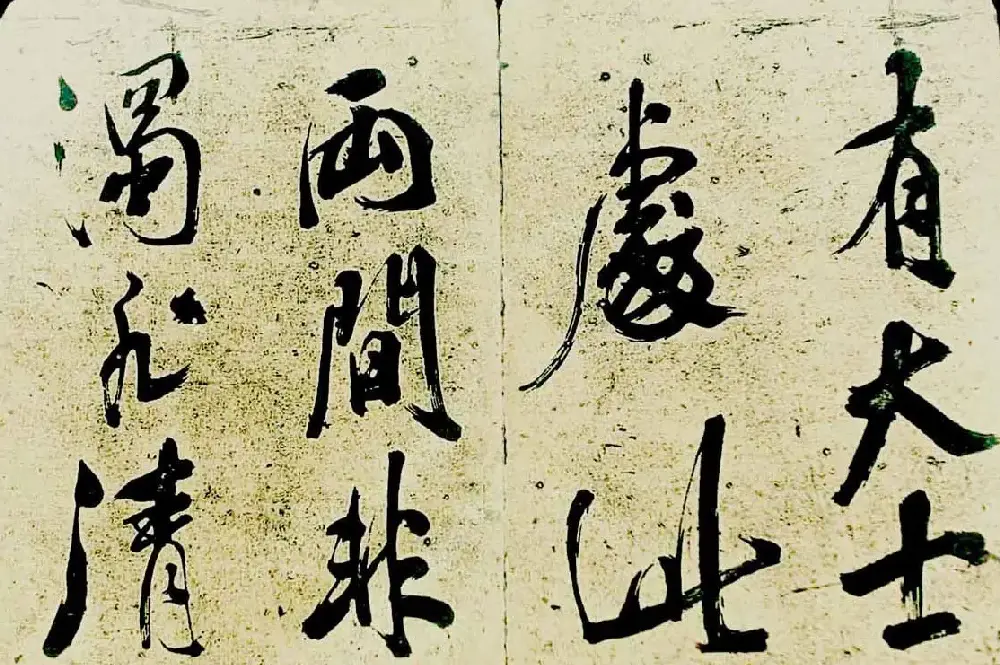 有大士
處此
兩間非
濁亦清